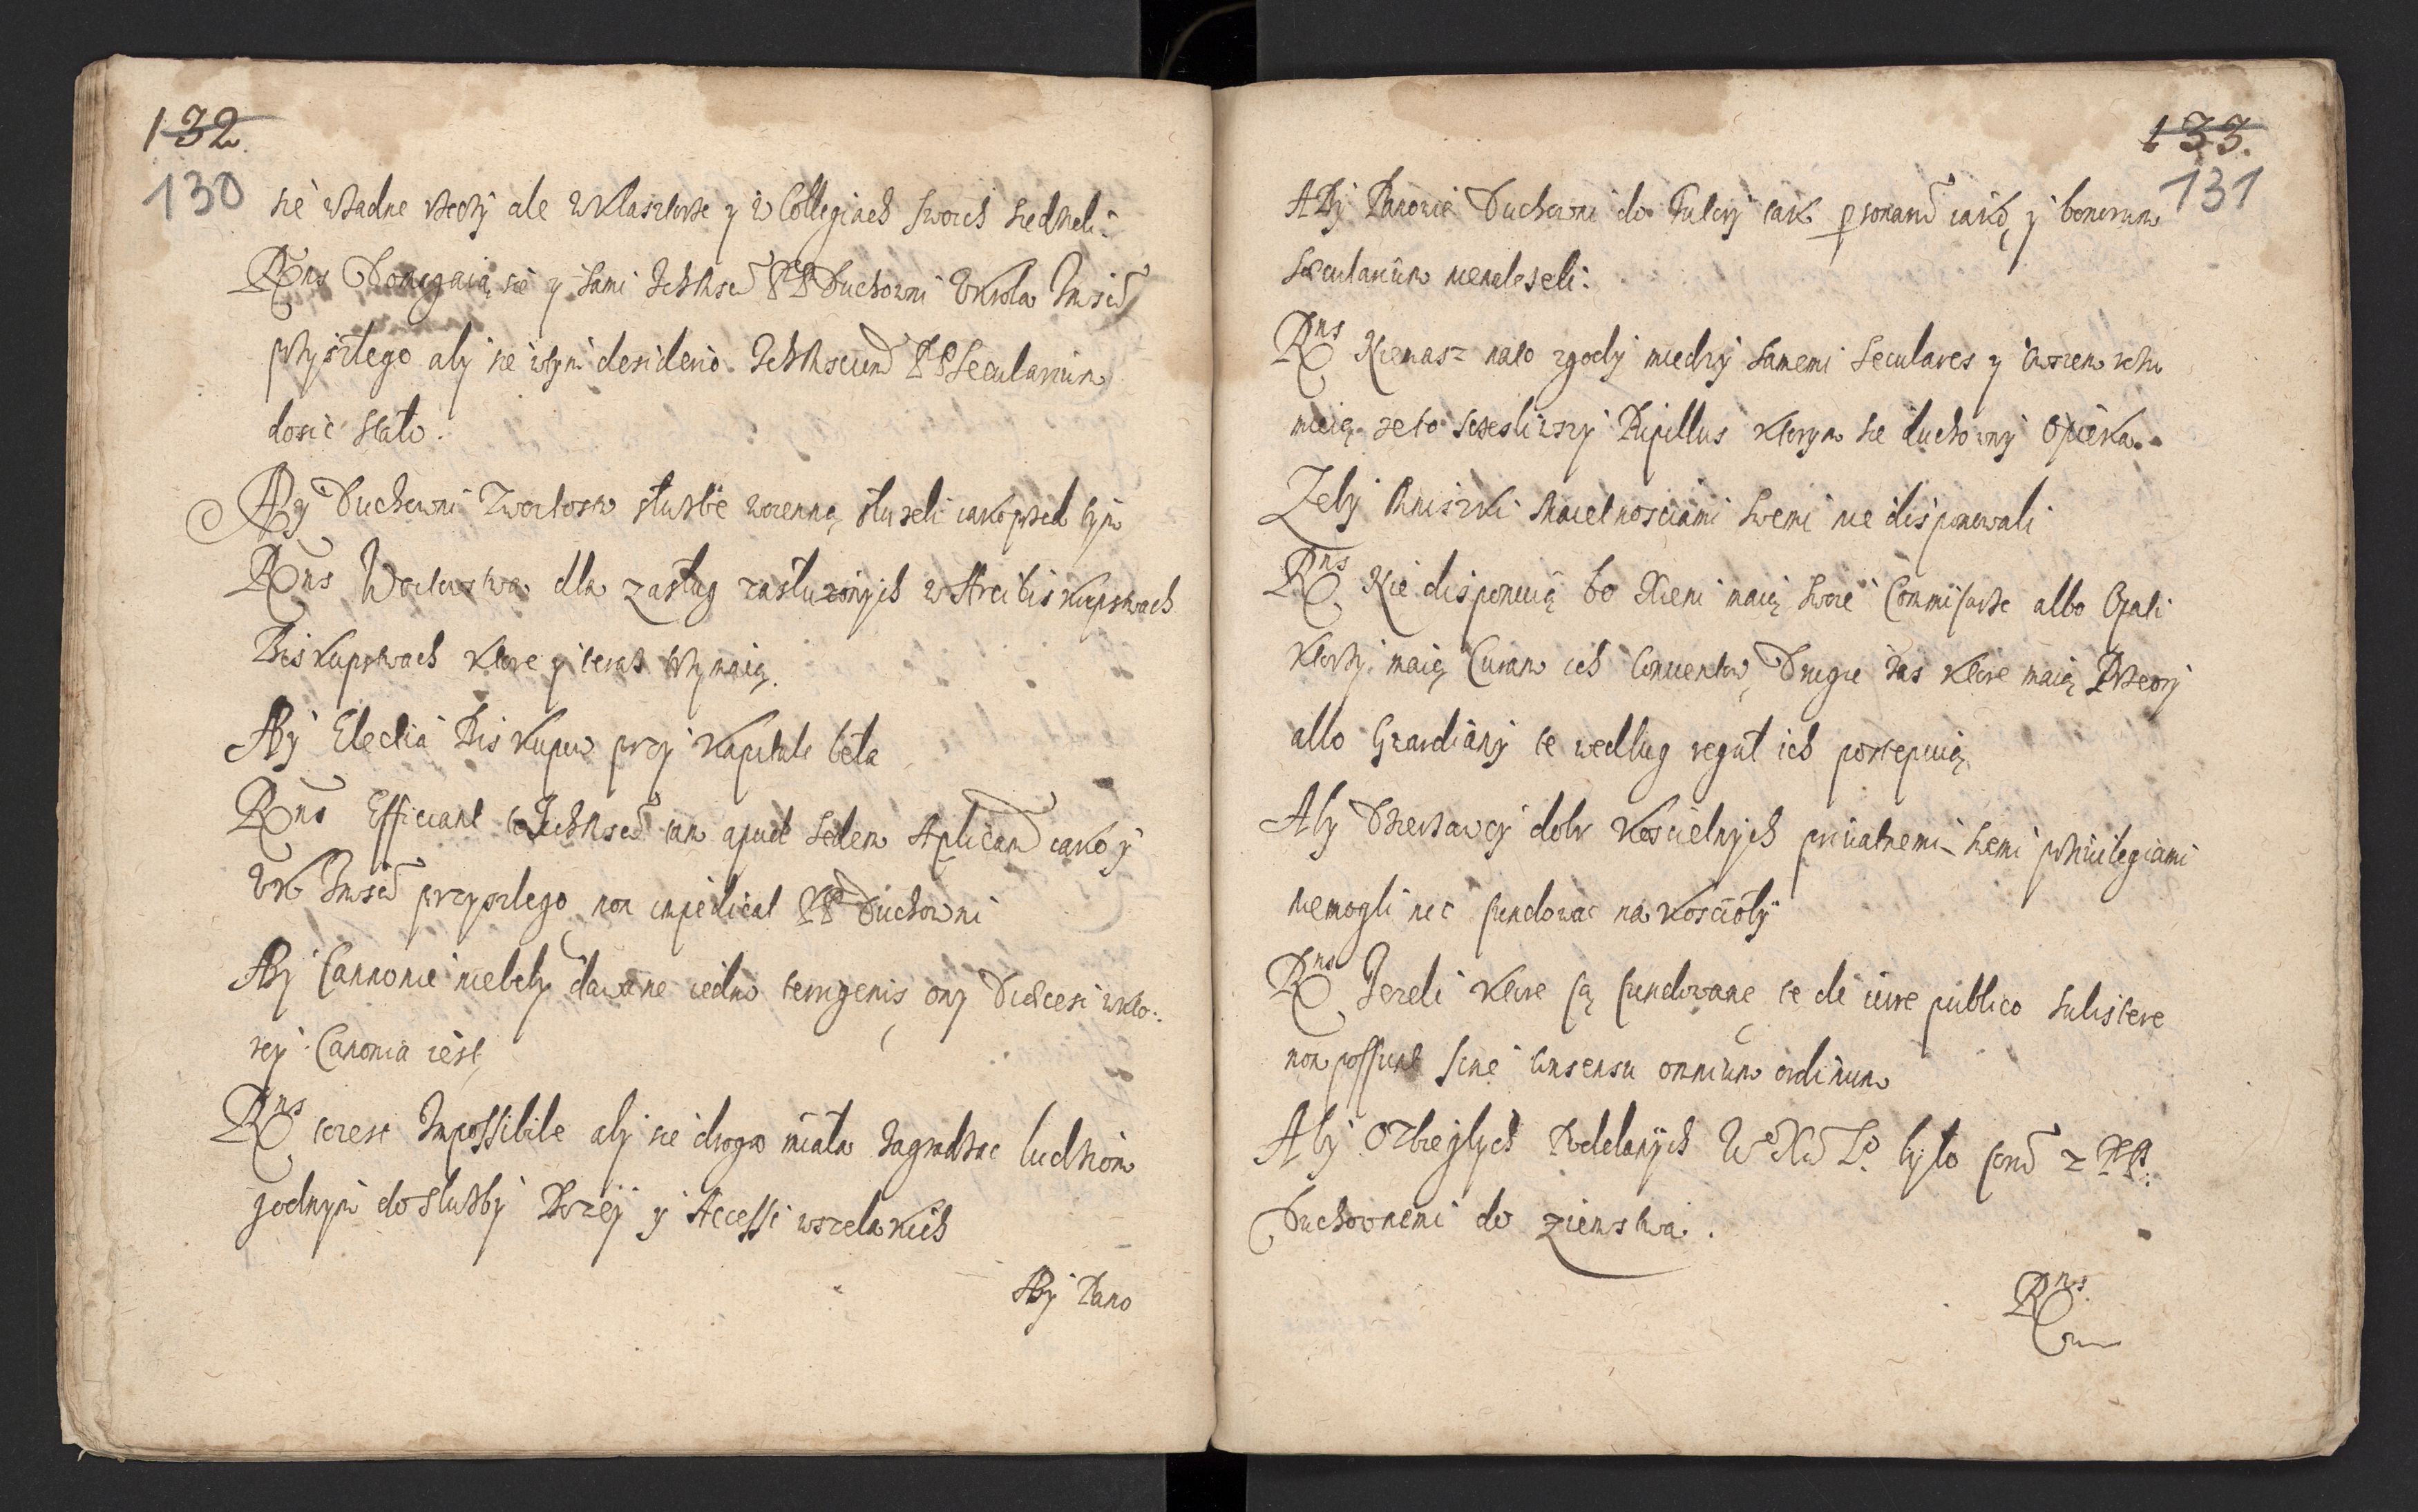 132.
130
sie wżadne rzeczy ale wklasztorze y w Collegiach swoich siedzieli.
Rns Domagaią sie y sami Ichmsc PP Duchowni Vkrola Jmsci
przyszłego aby sie wtym desiderio Ichmsciom PP Secularium
dosic stało.
Aby Duchowni Zwoitostw służbe woienną służeli iako przed tym
Rns Woitowstwa dla zasług zasłużonych w Arcibiskupstwach
Biskupstwach ktore y teraz trzymaią.
Aby Electia Biskupow przy Kapitule beła
Rns Efficiant to Ichmsc tam apud Sedem Aplicam iako y
VK Jmsci przyszlego non impedient PP Duchowni
Aby Cannonie niebeły dawane iedno terrigenis ony Diœcesi wkto:
rey Canonia iest
Rns to rzesc Impossibile aby sie droga miała zagradzac ludziom
godnym do służby Bożey y Accessi wszelakich
Aby Pano
133.
131
Aby Panowie Duchowni do Tutory tak personarum iako y bonorum
Sæcularium nienależeli.
Rns Niemasz nato zgody miedzy samemi Seculares y owszem
maią zeto sczesliwszy Pupillus ktorym sie duchowny opieka.
Zeby Mniszki Maietnosciami swemi nie disponowali
Rns Nie disponuią bo Xieni maią swoie Commisarze albo Opati
ktorzy maią Curam ich Conuentow, Drugie zas ktore maią Przeory
albo Gwardiany te wedlug reguł ich postepuią
Aby Dzierzawcy dobr koscielnych priuatnemi swemi priuilegiami
niemogli nic fundowac na koscioły
Rns Jezeli ktore są fundowane te de iure publico subsistere
non possunt sine consensu omnium ordinum
Aby Ozbiegłych Poddanych W X L. było forum z PP.
Duchownemi do ziemstwa.
Rns